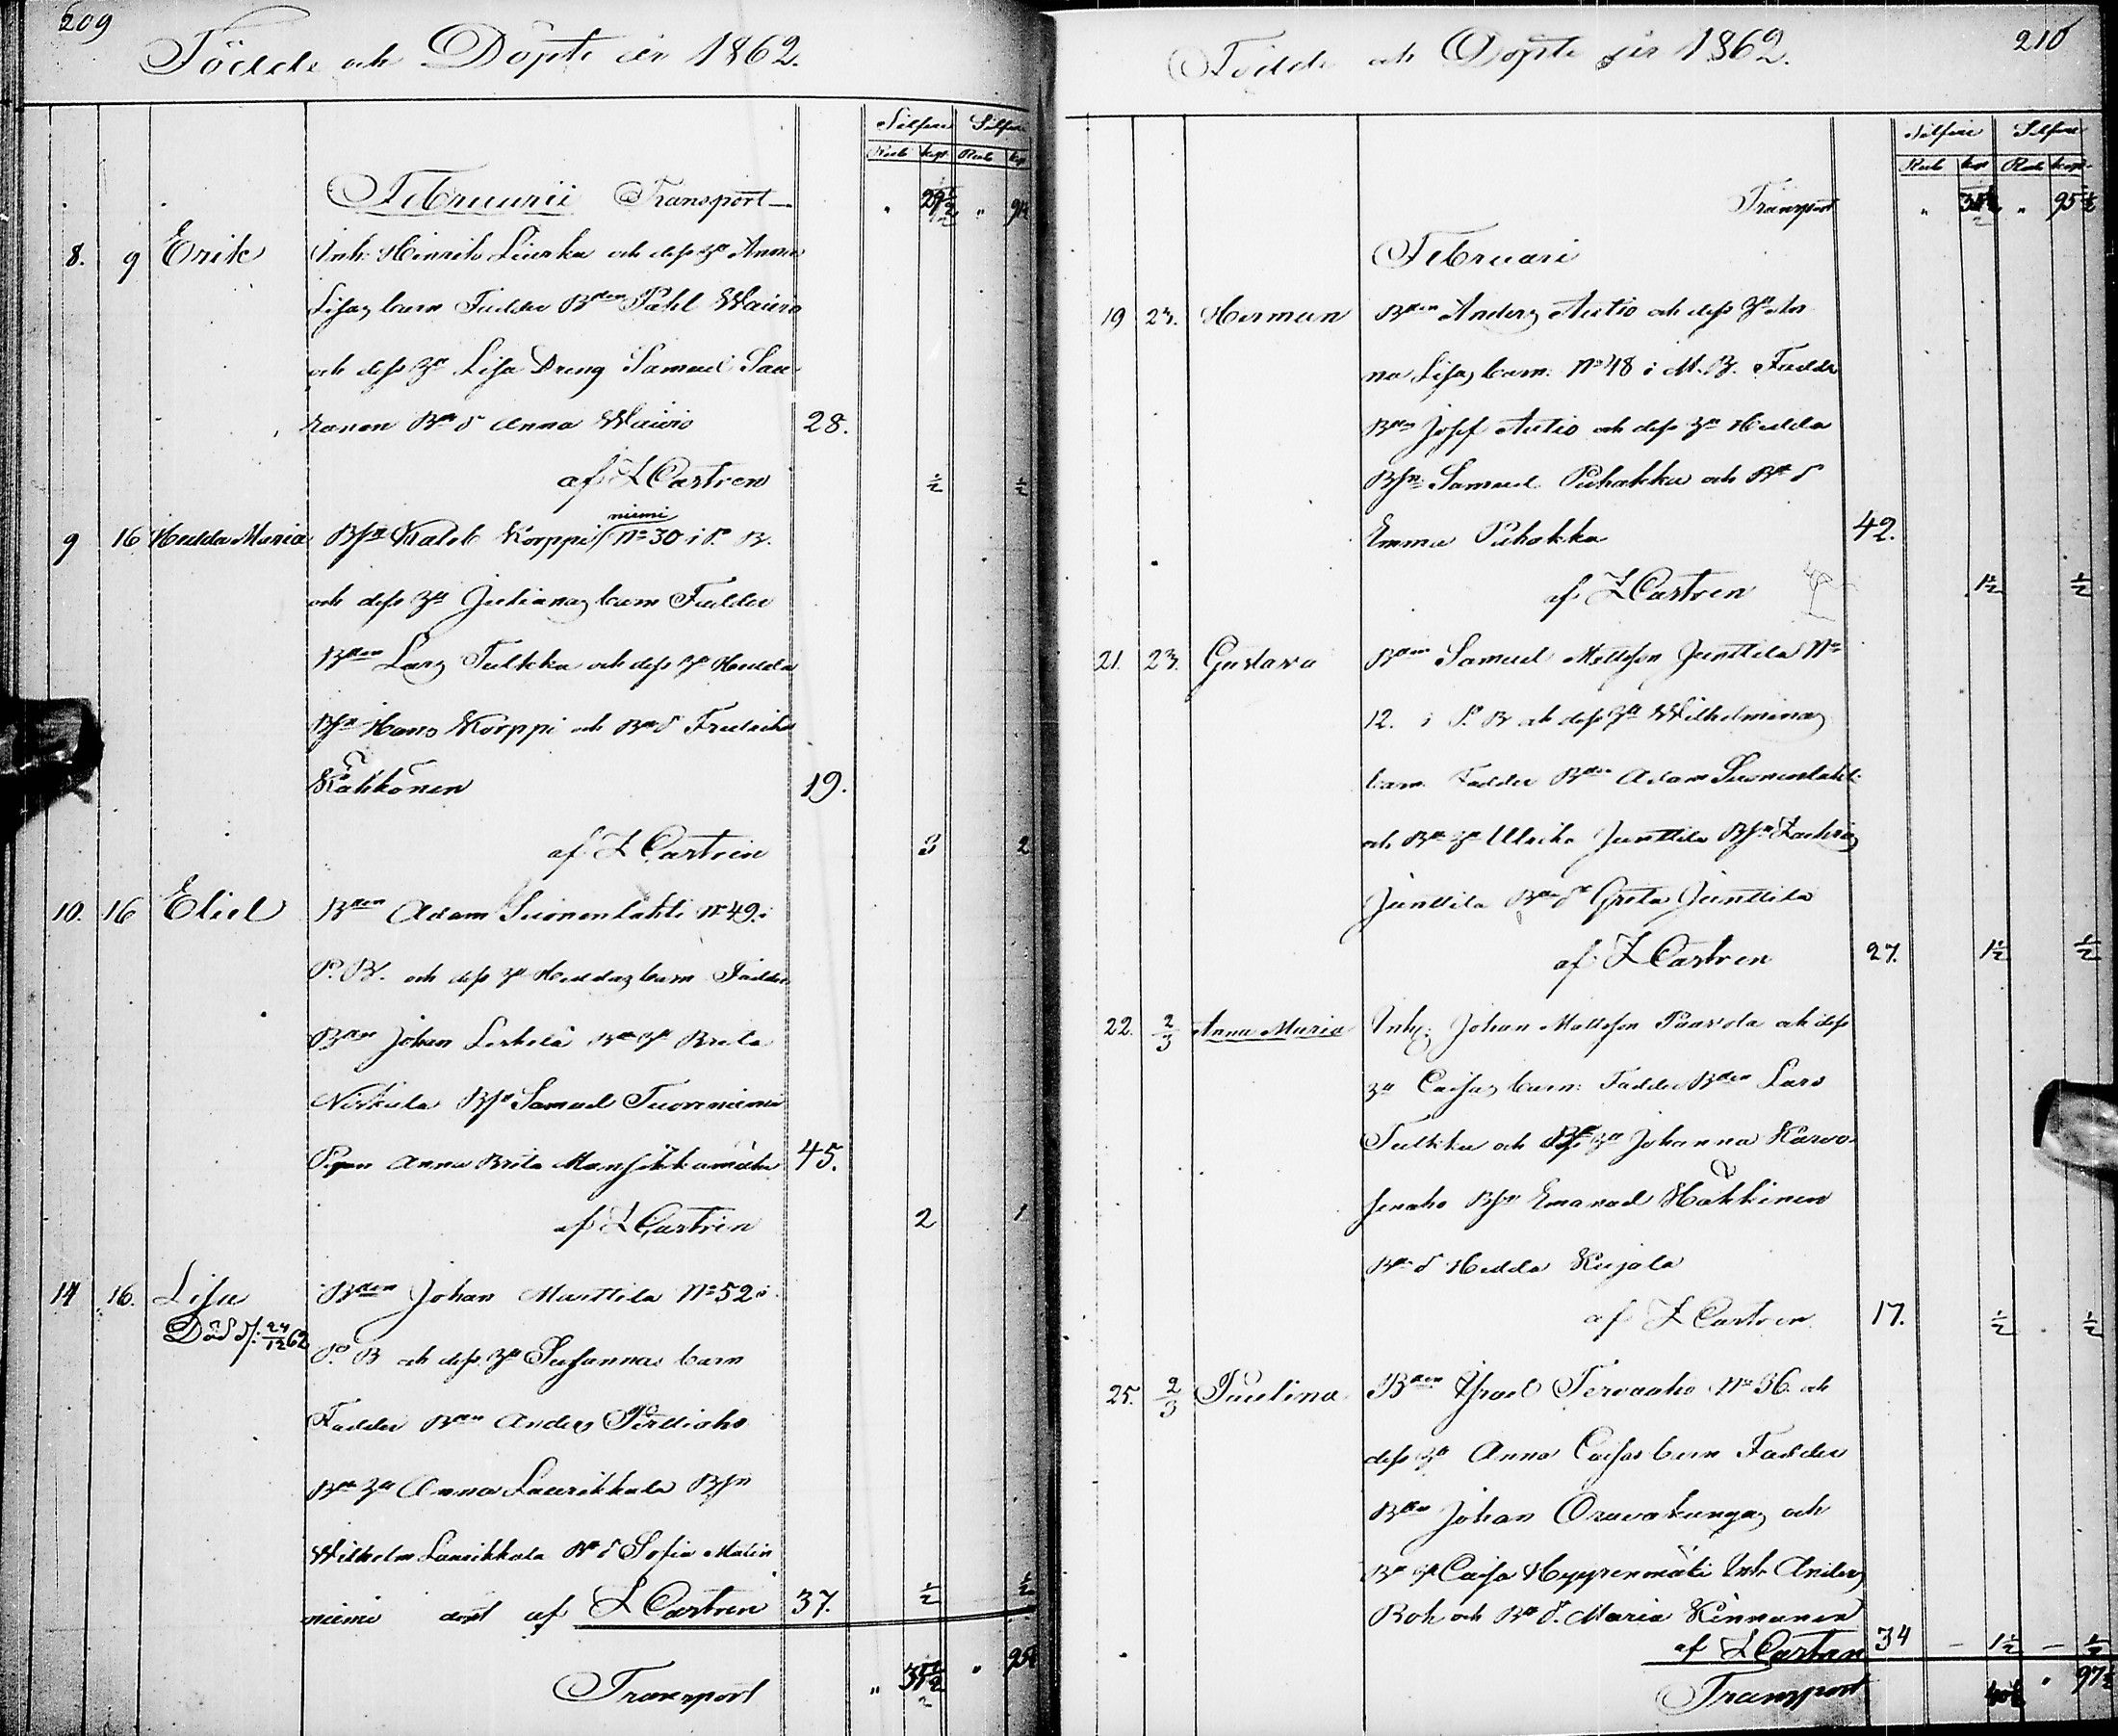 209
Födde och Döpte år 1862.
Silfver Silfver
Rub kop Rub kop
Februarii Transport " 29½ " 91
8. 9 Erik Inh: Hinrik Liuska och dess h:u Anna
Lisas barn Faddr B:den Påhl Wainio
och dess h:u Lisa Dräng Samuel Sau-
ranen B:d Anna Wainio 28.
af Z Castren ½ ½
niemi
9 16 Hedda Maria Bs:n Kaleb Korppi N:o 30 i P. B.
och dess h:u Julianas barn Faddr
B:den Lars Tulkka och dess h:u Hedda
Bs:n Hans Korppi och B:d Fredrika
Käkkönen 19.
af Z Castren 3 2
10. 16 Eliel B:den Adam Suonenlahti N:o 49 i
P. B. och dess h:u Heddas barn Faddr
B:den Johan Leskelä B:h:u Brita
Niskala Bs:n Samuel Tuoreniemi
Pigan Anna Brita Mansikkamäki 45.
af Z Castren 2 1
14 16. Lisa B:den Johan Marttila N:o 52 i
Död d. 24/12 62
P. B och dess h:u Susannas barn
Faddr B:den Anders Perttiaho
B:h:u Anna Laurikkala Bs:n
Wilhelm Laurikkala B:d Sofia Malin
niemi döpt af Z Castren 37. ½ ½
Transport " 35½ " 95½
210
Födde och Döpte år 1862.
Silfver Silfver
Rub kop Rub kop
Transport " 35½ " 95½
Februari
19 23. Herman B:den Anders Autio och dess h:u An-
na Lisas barn N:o 48 i M. B. Faddr
B:den Josef Autio och dess h:u Hedda
Bs:n Samuel Puhakka och B:d
Emma Puhakka 42.
af Z Castren 1½ ½
21. 23. Gustava B:den Samuel Mattsson Junttila N:o
12. i P. B och dess h:u Wilhelminas
barn Faddr B:den Adam Suonenlahti
och B:h:u Ulrika Junttila Bs:n Zachris
Junttila B:d Greta Junttila
af Z Castren 27. 1½ ½
22. 2/3 Anna Maria Inhys: Johan Mattsson Paavola och dess
h:u Caisas barn Faddr B:den Lars
Tulkku och h:u Johanna Karvo-
senaho Bs:n Emanuel Häkkinen
B:d Hedda Kujala
af Z Castren 17. ½ ½
25. 2/3 Paulina B:den Israel Tervaaho N:o 36. och
dess h:u Anna Caisas barn Faddr
B:den Johan Oravakangas och
B:h:u Caisa Hyypenmäki Inh Anders
Roh och B:d Maria Kinnunen
af Z Castren 34 – 1½ – ½
Transport 40½ " 97½